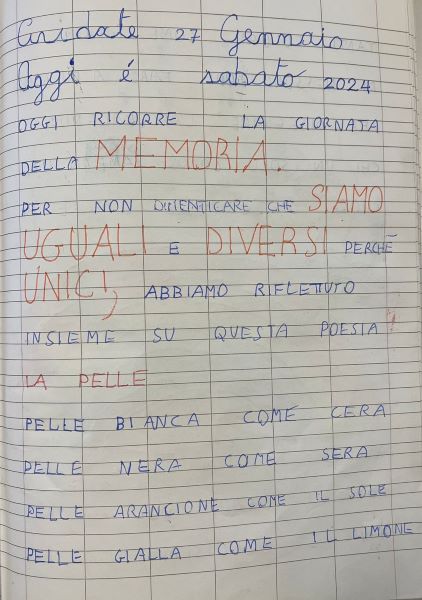 Cividate 27 Gennaio
Oggi é sabato 2024
OGGI RICORRE LA GIORNATA
DELLA MEMORIA.
PER NON DIMENTICARE CHE SIAMO
UGUALI E DIVERSI PERCHÉ
UNICI, ABBIAMO RIFLETTUTO
INSIEME SU QUESTA POESIA!
LA PELLE
PELLE BIANCA COME CERA
PELLE NERA COME SERA
PELLE ARANCIONE COME IL SOLE
PELLE GIALLA COME IL LIMONE